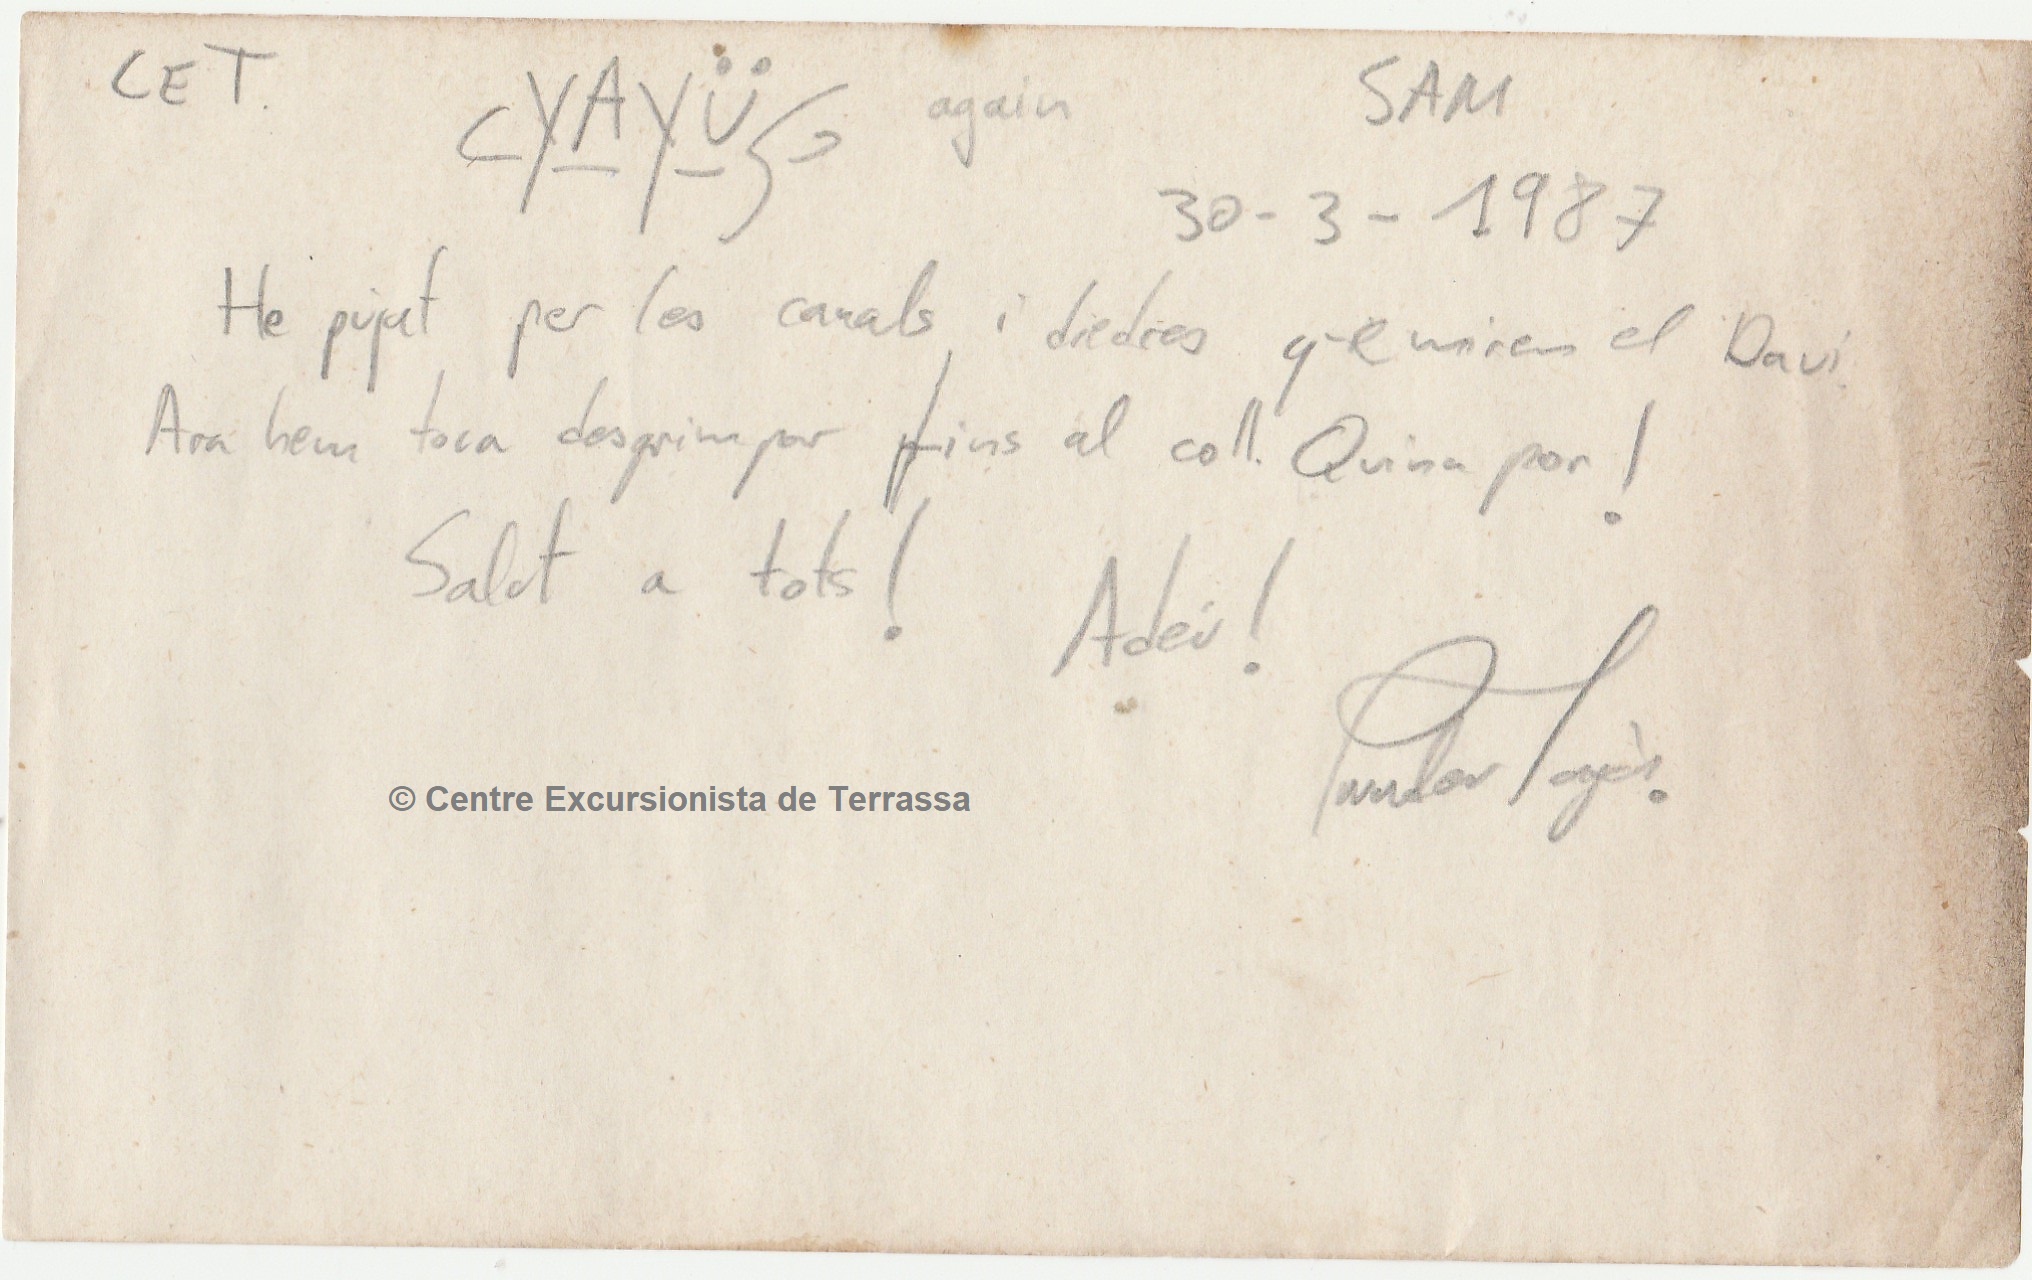 CET. YAYÜ again SAM
30-3-1987
He pujat per les canals i diedres que miren el Davi.
Ara hem toca desgrimpar fins al coll. Quina por!
Salut a tots! Adéu!
© Centre Excursionista de Terrassa